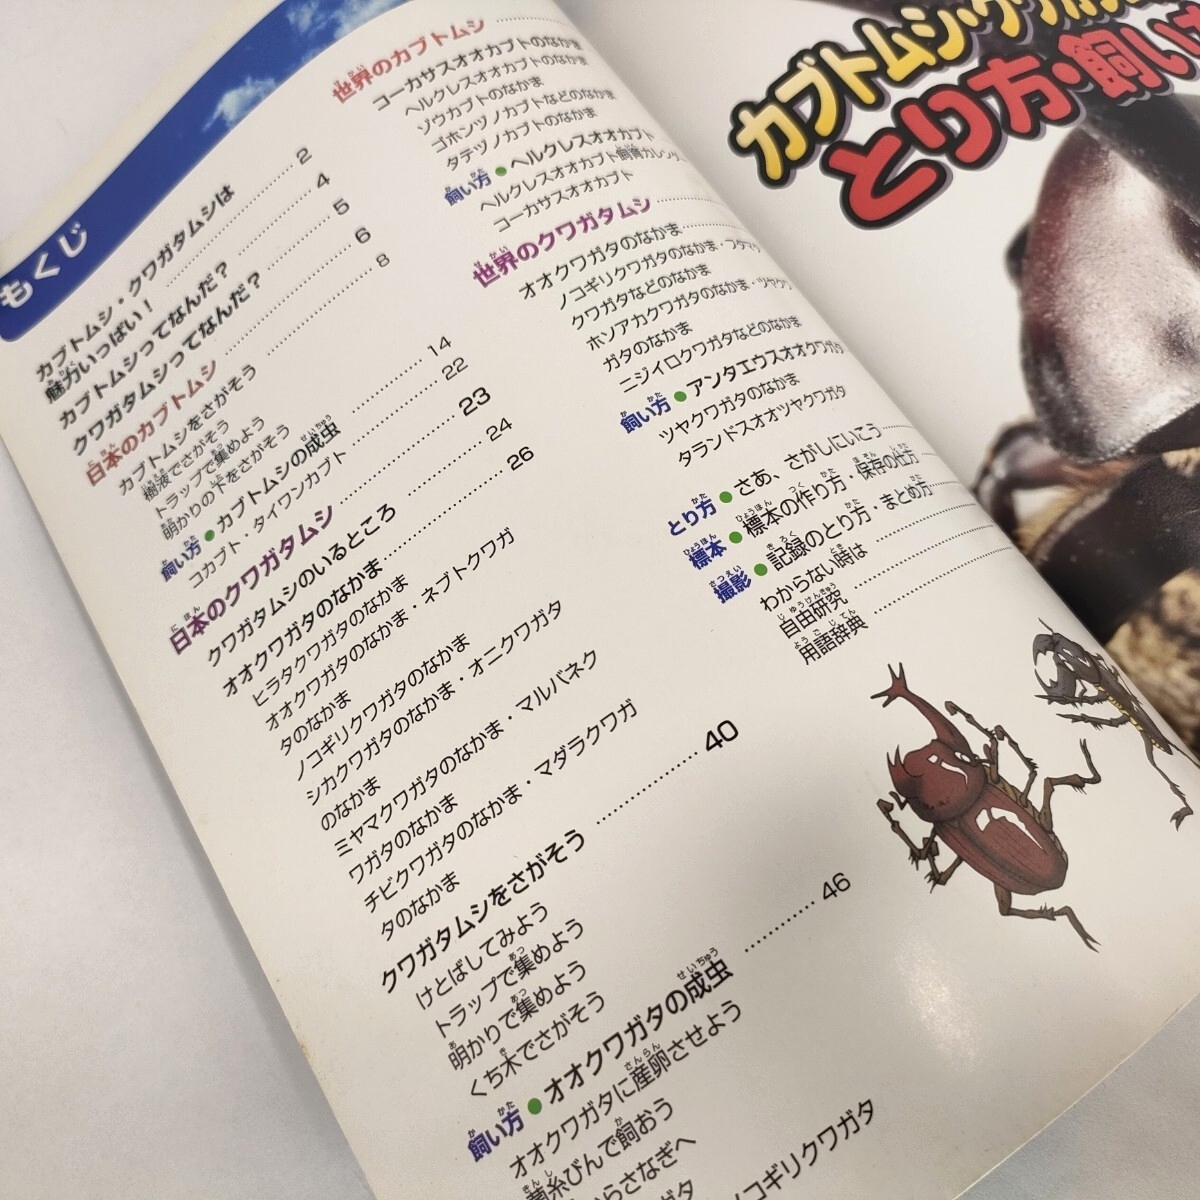 もくじ
カブトムシ・クワガタムシは
魅力いっぱい! 2
カブトムシってなんだ? 4
クワガタムシってなんだ? 5
日本のカブトムシ 6
カブトムシをさがそう 8
樹液でさがそう
トラップで集めよう
明かりの下をさがそう
飼い方●カブトムシの成虫 14
コカブト・タイワンカブト 22
日本のクワガタムシ 23
クワガタムシのいるところ 24
オオクワガタのなかま 26
ヒラタクワガタのなかま
オオクワガタのなかま・ネブトクワガ
タのなかま
ノコギリクワガタのなかま
シカクワガタのなかま・オニクワガタ
のなかま
ミヤマクワガタのなかま・マルバネク
ワガタのなかま
チビクワガタのなかま・マダラクワガ
タのなかま
クワガタムシをさがそう 40
けとばしてみよう
トラップで集めよう
明かりで集めよう
くち木でさがそう
飼い方●オオクワガタの成虫 46
オオクワガタに産卵させよう
菌糸びんで飼おう
からさなぎへ
ガタ
ノコギリクワガタ
世界のカブトムシ
コーカサスオオカブトのなかま
ヘルクレスオオカブトのなかま
ゾウカブトのなかま
ゴホンヅノカブトなどのなかま
タテヅノカブトのなかま
飼い方●ヘルクレスオオカブト
ヘルクレスオオカブト飼育カレンダ
コーカサスオオカブト
世界のクワガタムシ
オオクワガタのなかま
ノコギリクワガタのなかま・フタマタ
クワガタなどのなかま
ホソアカクワガタのなかま・ツヤクワ
ガタのなかま
ニジイロクワガタなどのなかま
飼い方●アンタエウスオオクワガタ
ツヤクワガタのなかま
タランドスオオツヤクワガタ
とり方●さあ、さがしにいこう
標本●標本の作り方・保存の仕方
撮影●記録のとり方・まとめ方
わからない時は
自由研究
用語辞典
カブトムシ・クワガ
とり方・飼い